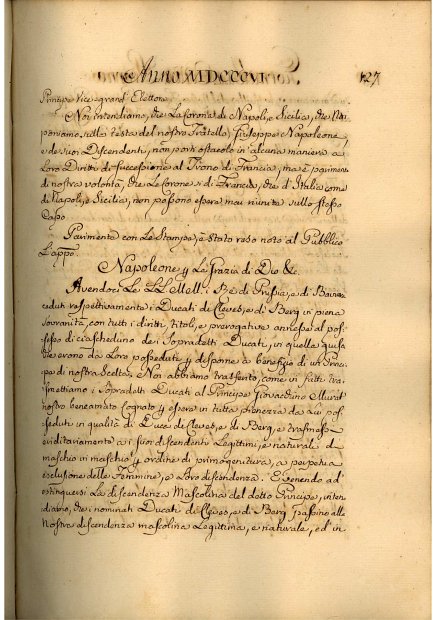 Anno MDCCCVI. 127
Principe Vice-grand' Elettore.
Noi intendiamo, che La Corona di Napoli, e Sicilia, che Noi
poniamo sulla testa del nostro Fratello Giuseppe Napoleone,
e de suoi Discendenti, non porti ostacolo in alcuna maniera a
Loro Diritti di successione al Trono di Francia, ma è parimente
di nostra volontà, che Le Corone, si di Francia, che d'Italia come
di Napoli, e Sicilia, non possono essere mai riunite sullo stesso
Capo.
Parimente con Le Stampe, è stato reso noto al Pubblico
L'appo.
Napoleone p La Grazia di Dio &c.
Avendoci Le LL. Mell: i Rè di Prussia, e di Baviera
ceduti rispettivamente i Ducati di Cleves, e di Berg in piena
sovranità, con tutti i diritti, titoli, e prerogative annesse al pos-
sesso di ciascheduno dei sopradetti Ducati, in quella guisa
che erono da Loro posseduti p disporne a benefizio di un Princi-
pe di nostra scelta. Noi abbiamo trasferito, come in fatti tra-
smettiamo i sopradetti Ducati al Principe Giovacchino Murat
nostro beneamato Cognato p essere in tutta pienezza da Lui pos-
seduti in qualità di Duca di Cleves, e di Berg, e trasmessi
ereditariamente a i suoi discendenti Legittimi, e naturali di
maschio in maschio p ordine di primogenitura, a perpetua
esclusione delle Femmine, e Loro discendenza. E venendo ad
estinguersi La discendenza Mascolina del detto Principe, inten-
diamo, che i nominati Ducati di Cleves, e di Berg passino alla
Nostra discendenza mascolina Legittima, e naturale, ed in